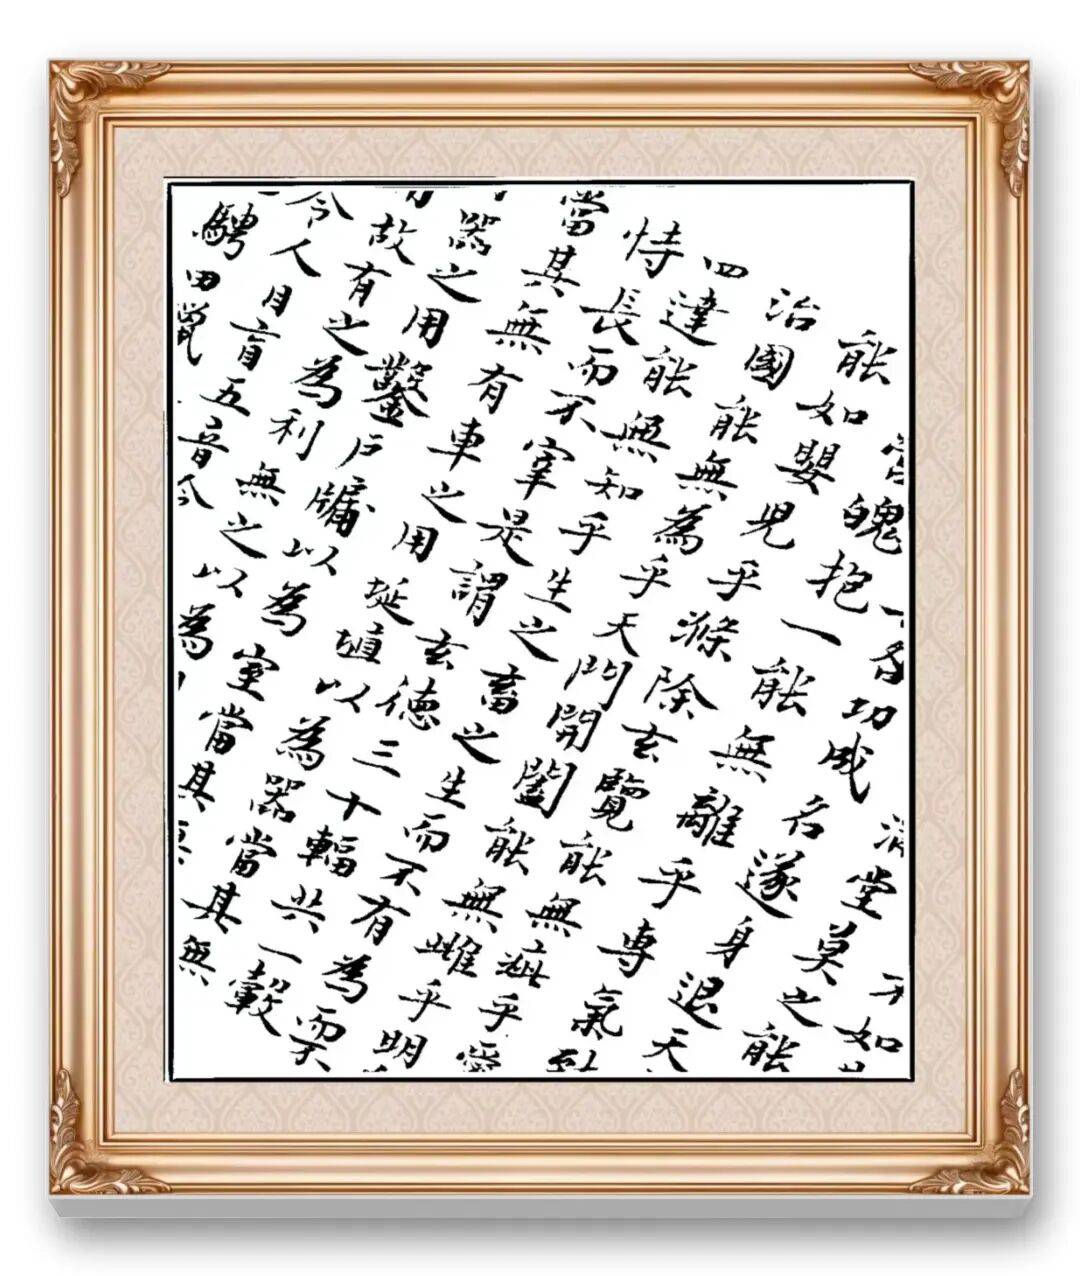 不如
堂莫之能
功成名遂身退天
營魄抱一能無離乎專氣致
能如嬰兒乎滌除玄覽能無疵乎愛
治國能無為乎天門開闔能無雌乎明
四達能無知乎生之畜之生而不有為而不
恃長而不宰是謂玄德三十輻共一轂
當其無有車之用埏埴以為器當其無
器之用鑿戶牖以為室當其
故有之為利無之以為
令人目盲五音令
騁田獵